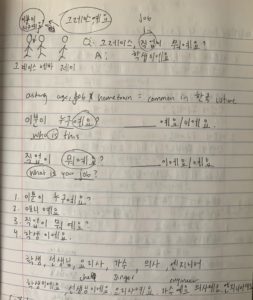 이분이 누구예요? 그레이스예요 job
Q: 그레이스, 직업이 뭐예요?
A: 학생이에요
그레이스 에마 제이
asking age, job & hometown = common in 한국 culture
이분이 누구예요? 예요/이에요.
who is this
직업이 뭐예요? 이에요/예요.
What is your job?
1. 이분이 누구예요?
2. 예요.
3. 직업이 뭐예요?
4. 학생이에요.
학생, 선생님, 요리사, 가수, 의사, 엔지니어
chef singer engineer
학생이에요 선생님이에요 요리사예요 가수예요 의사예요 엔지니어예요